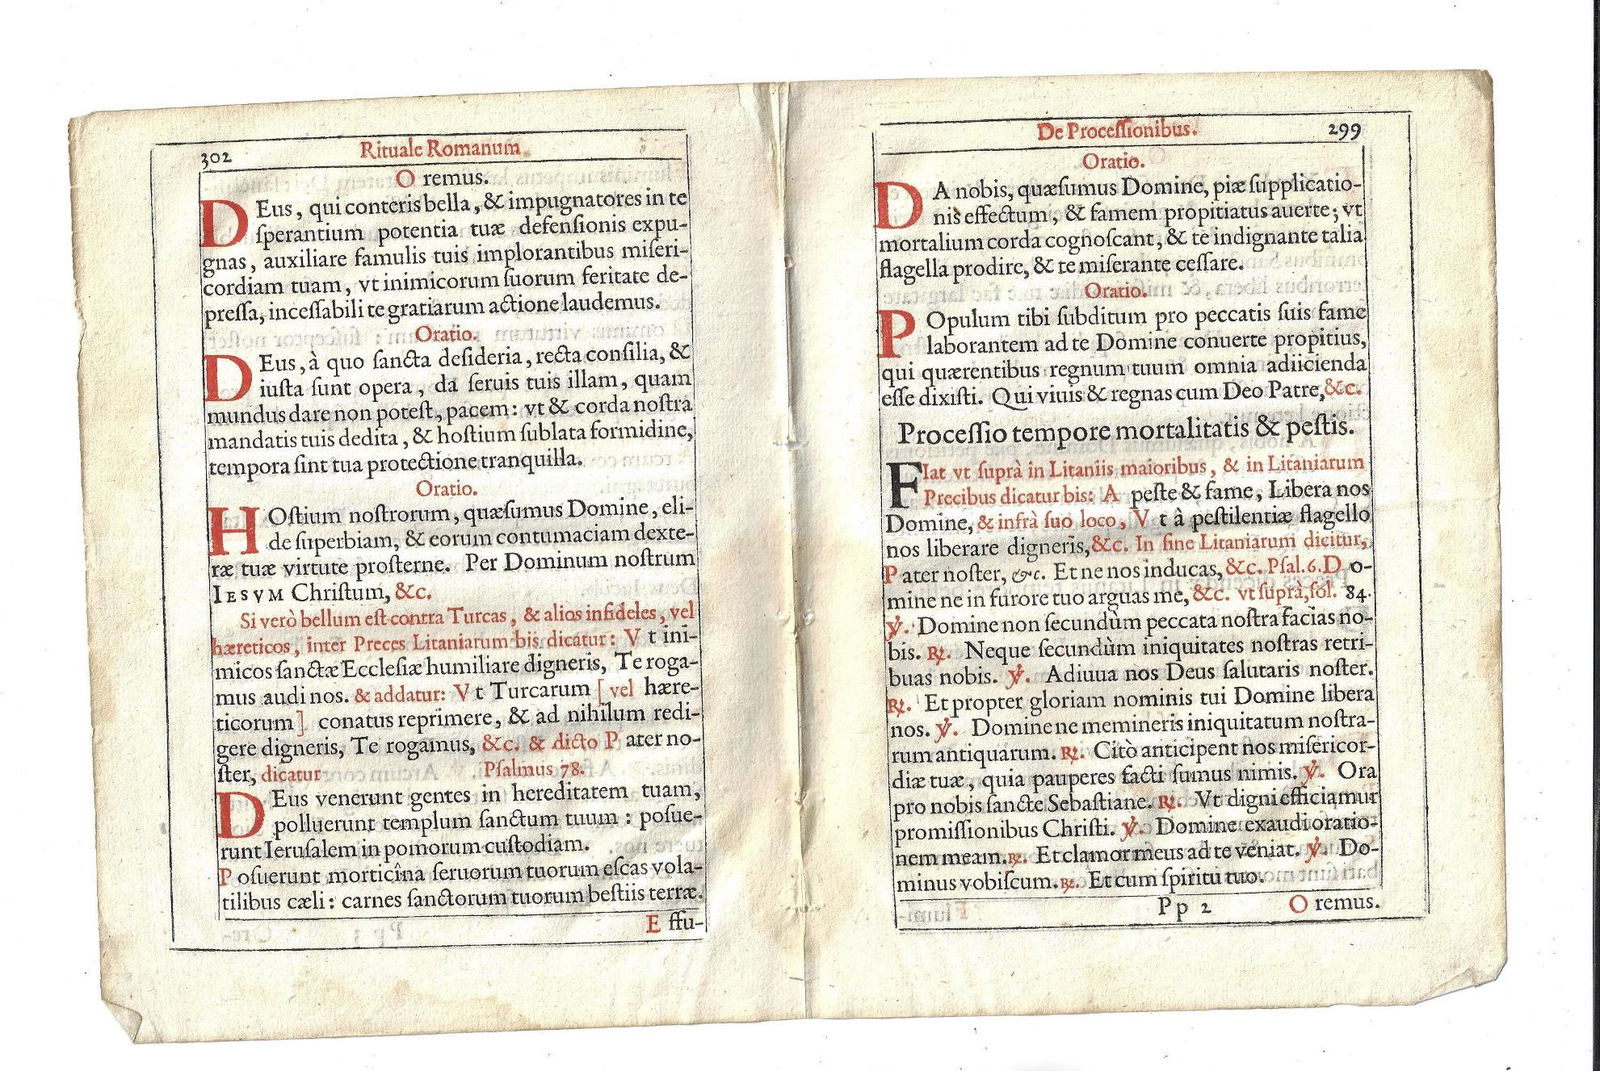 302 Rituale Romanum.
O remus.
DEus, qui conteris bella, & impugnatores in te
ſperantium potentia tuæ defenſionis expu-
gnas, auxiliare famulis tuis implorantibus miſeri-
cordiam tuam, vt inimicorum ſuorum feritate de-
preſſa, inceſſabili te gratiarum actione laudemus.
Oratio.
DEus, à quo ſancta deſideria, recta conſilia, &
iuſta ſunt opera, da ſeruis tuis illam, quam
mundus dare non poteſt, pacem: vt & corda noſtra
mandatis tuis dedita, & hoſtium ſublata formidine,
tempora ſint tua protectione tranquilla.
Oratio.
HOſtium noſtrorum, quæſumus Domine, eli-
de ſuperbiam, & eorum contumaciam dexte-
ræ tuæ virtute proſterne. Per Dominum noſtrum
IESVM Chriſtum, &c.
Si verò bellum eſt contra Turcas, & alios infideles, vel
hæreticos, inter Preces Litaniarum bis dicatur: V t ini-
micos ſanctæ Eccleſiæ humiliare digneris, Te roga-
mus audi nos. & addatur: V t Turcarum [ vel hære-
ticorum ] conatus reprimere, & ad nihilum redi-
gere digneris, Te rogamus, &c. & dicto P ater no-
ſter, dicatur Pſalmus 78.
DEus venerunt gentes in hereditatem tuam,
polluerunt templum ſanctum tuum : poſue-
runt Ieruſalem in pomorum cuſtodiam.
P oſuerunt morticîna ſeruorum tuorum eſcas vola-
tilibus cæli : carnes ſanctorum tuorum beſtiis terræ.
E ffu-
De Proceſſionibus. 299
Oratio.
DA nobis, quæſumus Domine, piæ ſupplicatio-
nis effectum, & famem propitiatus auerte; vt
mortalium corda cognoſcant, & te indignante talia
flagella prodire, & te miſerante ceſſare.
Oratio.
POpulum tibi ſubditum pro peccatis ſuis fame
laborantem ad te Domine conuerte propitius,
qui quærentibus regnum tuum omnia adiicienda
eſſe dixiſti. Qui viuis & regnas cum Deo Patre, &c.
Proceſſio tempore mortalitatis & peſtis.
FIat vt ſuprà in Litaniis maioribus, & in Litaniarum
Precibus dicatur bis: A peſte & fame, Libera nos
Domine, & infrà ſuo loco, V t à peſtilentiæ flagello
nos liberare digneris, &c. In fine Litaniarum dicitur,
P ater noſter, &c. Et ne nos inducas, &c. Pſal. 6. D o-
mine ne in furore tuo arguas me, &c. vt ſuprà, fol. 84.
℣. Domine non ſecundùm peccata noſtra facias no-
bis. ℟. Neque ſecundùm iniquitates noſtras retri-
buas nobis. ℣. Adiuua nos Deus ſalutaris noſter.
℟. Et propter gloriam nominis tui Domine libera
nos. ℣. Domine ne memineris iniquitatum noſtra-
rum antiquarum. ℟. Citò anticipent nos miſericor-
diæ tuæ, quia pauperes facti ſumus nimis. ℣. Ora
pro nobis ſancte Sebaſtiane. ℟. Vt digni efficiamur
promiſſionibus Chriſti. ℣. Domine exaudi oratio-
nem meam. ℟. Et clamor meus ad te veniat. ℣. Do-
minus vobiſcum. ℟. Et cum ſpiritu tuo.
Pp 2 O remus.